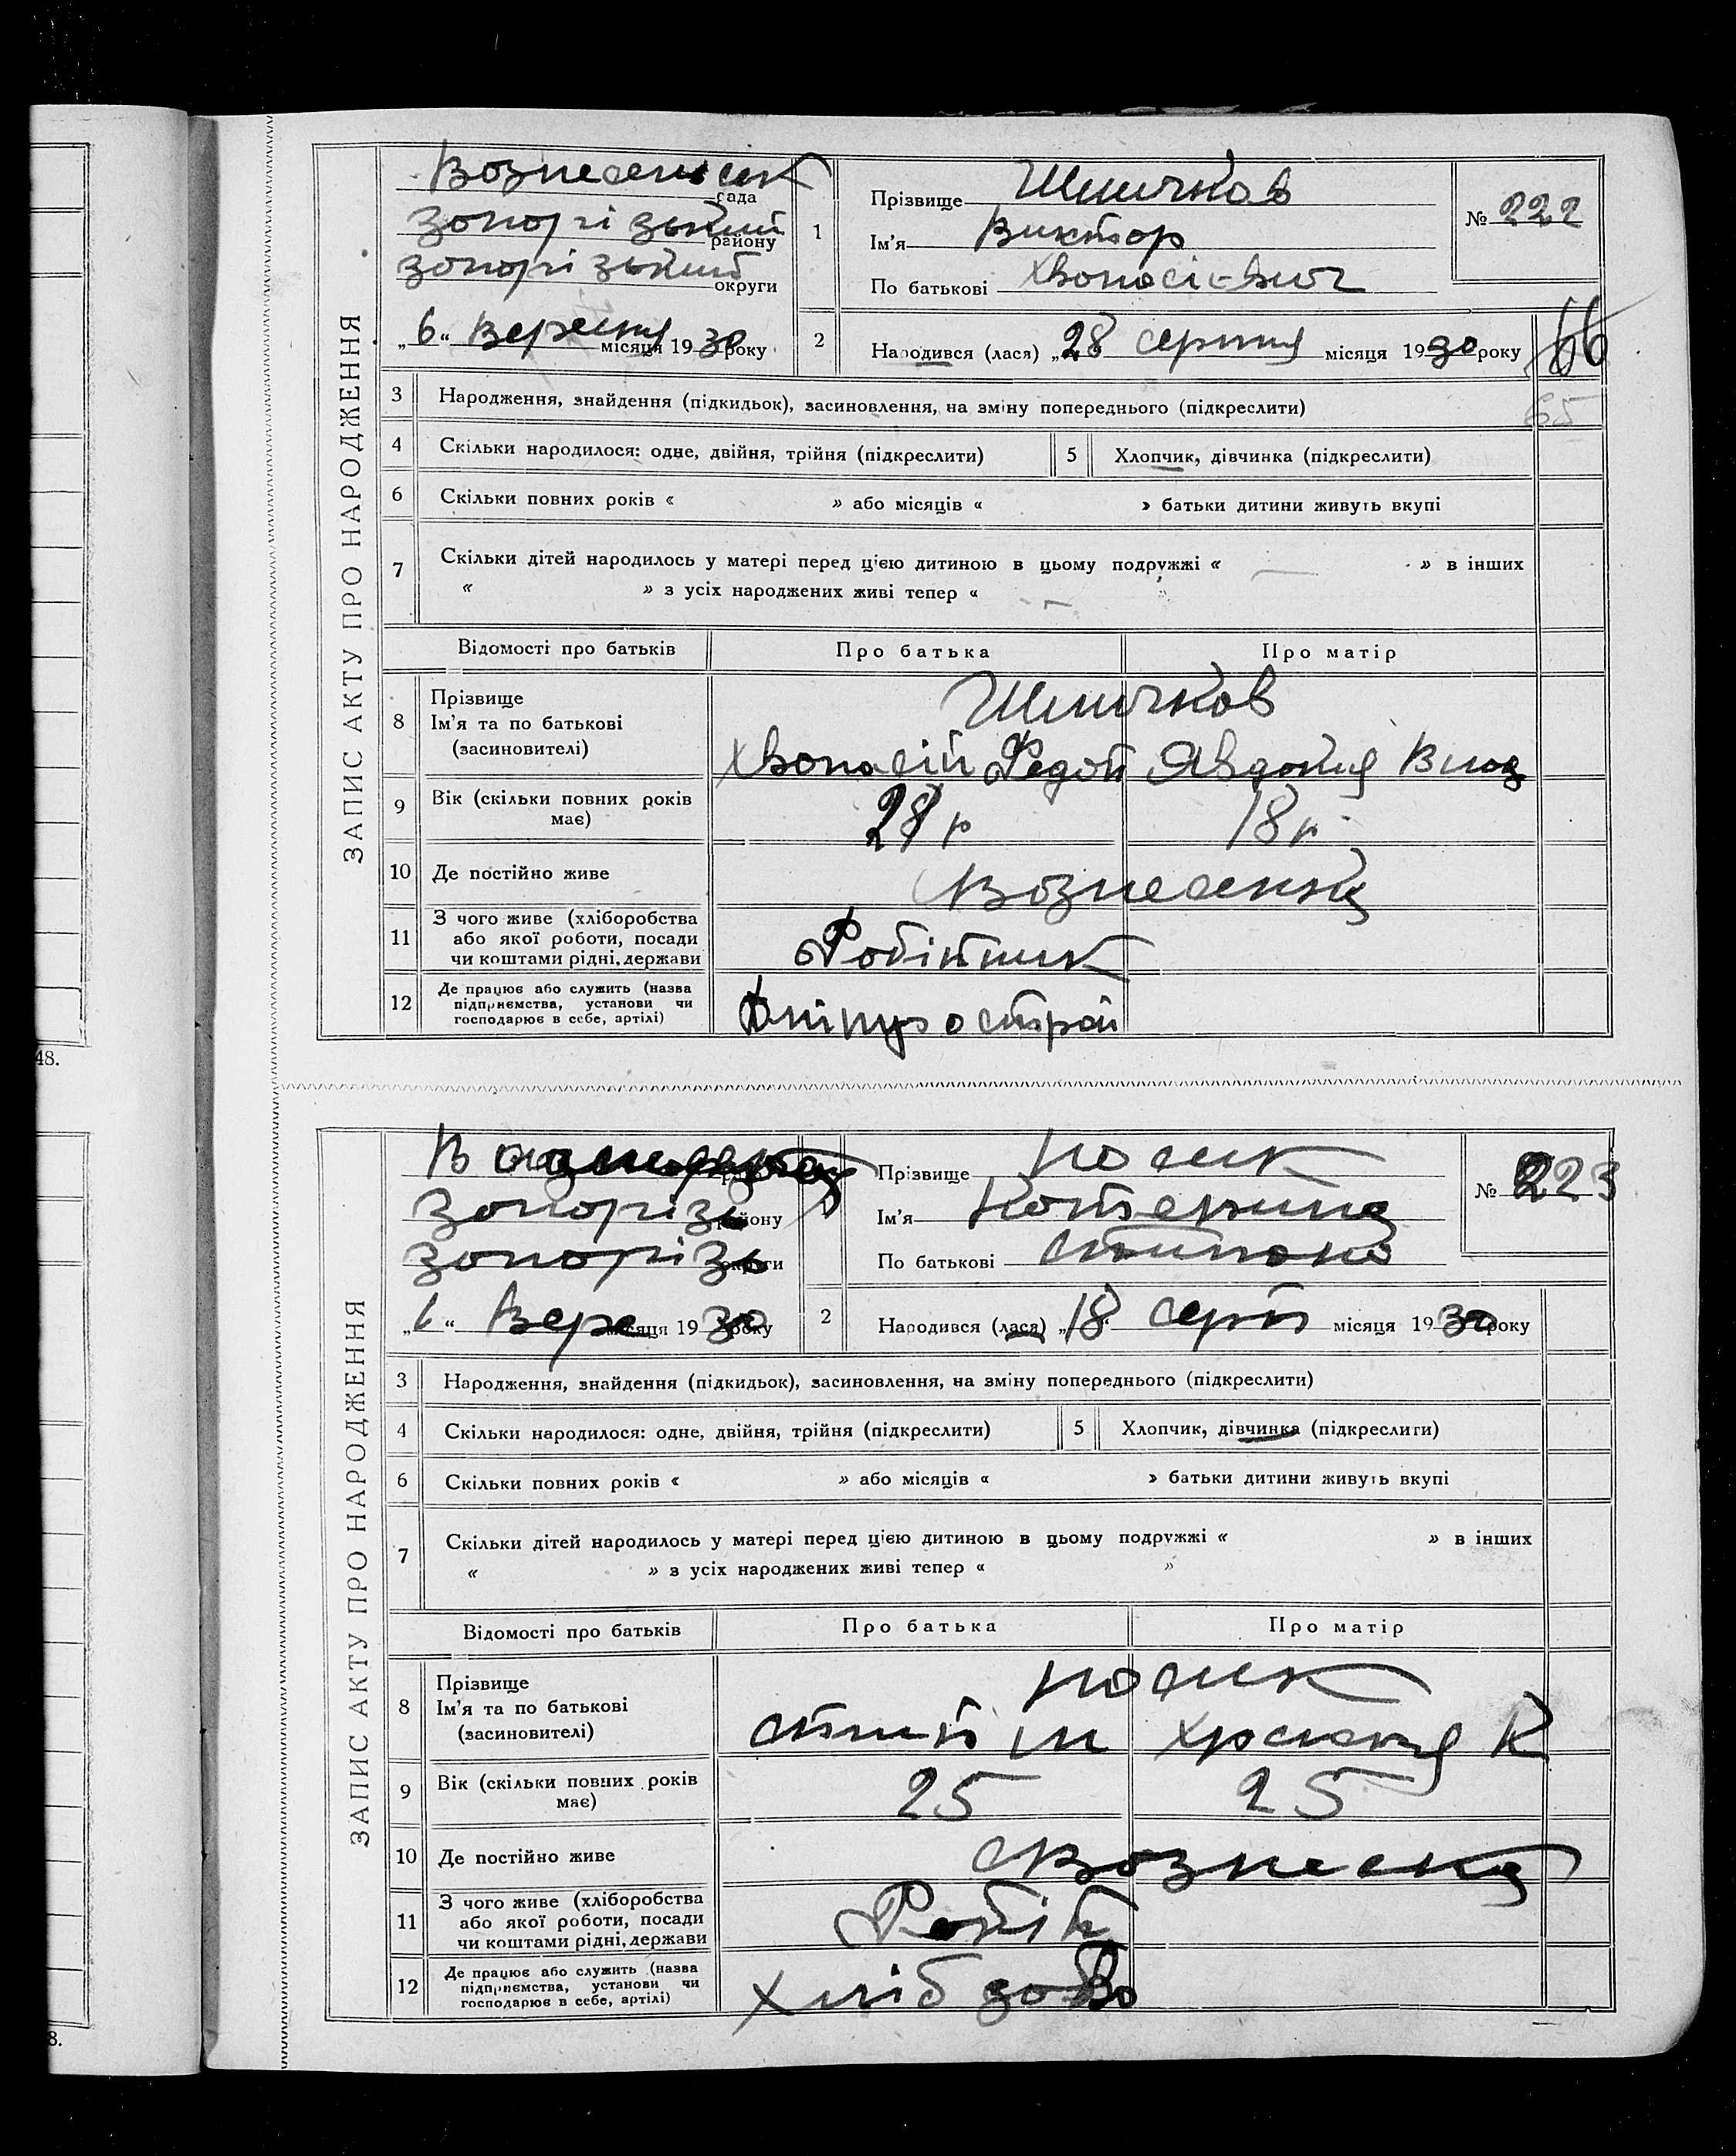 48.
8.
ЗАПИС АКТУ ПРО НАРОДЖЕННЯ
Вознесенськ
рада
Зопорізький
району
Зопорізький
округи
„6“ Вересня місяця 1930 року
1
Прізвище Шпичков
Ім'я Виктор
По батькові Хвопасієвич
№ 222
2
Народився (лася) „28 серпня місяця 1930 року
66
65
3 Народження, знайдення (підкидьок), засиновлення, на зміну попереднього (підкреслити)
4 Скільки народилося: одне, двійня, трійня (підкреслити)
5 Хлопчик, дівчинка (підкреслити)
6 Скільки повних років « » або місяців « » батьки дитини живуть вкупі
7 Скільки дітей народилось у матері перед цією дитиною в цьому подружжі « — » в інших
« » з усіх народжених живі тепер « — »
Відомості про батьків Про батька Про матір
8 Прізвище
Ім'я та по батькові
(засиновителі)
Шпичков
Хвопасій Федот Явдокия
9 Вік (скільки повних років
має)
28 р 18 р
10 Де постійно живе
Вознесенка
11 З чого живе (хліборобства
або якої роботи, посади
чи коштами рідні, держави
Робітник
12 Де працює або служить (назва
підприємства, установи чи
господарює в себе, артілі)
Дніпрострой
ЗАПИС АКТУ ПРО НАРОДЖЕННЯ
Зопорізь
району
Зопорізь
округи
„6“ Вере місяця 1930 року
Прізвище Носик
Ім'я Котерина
По батькові
№ 223
2
Народився (лася) „18 серп місяця 1930 року
3 Народження, знайдення (підкидьок), засиновлення, на зміну попереднього (підкреслити)
4 Скільки народилося: одне, двійня, трійня (підкреслити)
5 Хлопчик, дівчинка (підкреслити)
6 Скільки повних років « » або місяців « » батьки дитини живуть вкупі
7 Скільки дітей народилось у матері перед цією дитиною в цьому подружжі « » в інших
« » з усіх народжених живі тепер « »
Відомості про батьків Про батька Про матір
8 Прізвище
Ім'я та по батькові
(засиновителі)
Носик
К
9 Вік (скільки повних років
має)
25 25
10 Де постійно живе
Вознесенка
11 З чого живе (хліборобства
або якої роботи, посади
чи коштами рідні, держави
Робіт
12 Де працює або служить (назва
підприємства, установи чи
господарює в себе, артілі)
Хліб завво